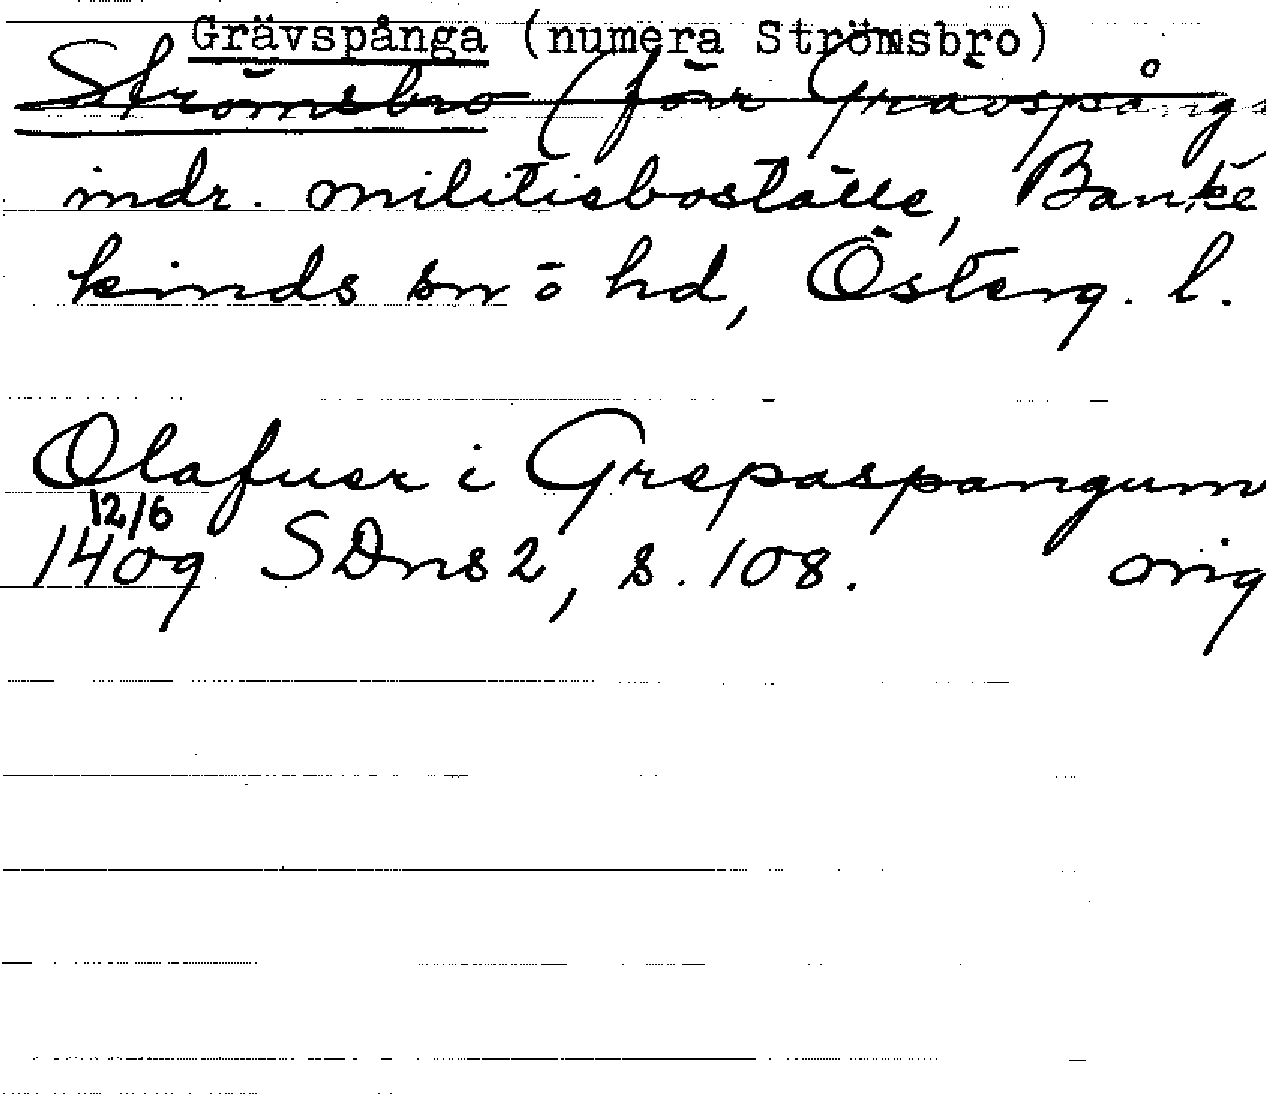 Grävspånga (numera Strömsbro)
Strömsbro (förr Grävspånga
indr. militieboställe, Banke
kinds sn o hd, Österg. l.
Olafuer i Grepaspangum
12/6
1409 SDns 2, s. 108. orig